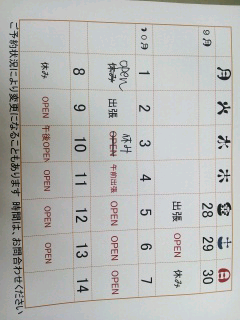 月 火 水 木 金 土 日
9月 28 29 30
出張 OPEN 休み
10月 1 2 3 4 5 6 7
open 休み
休み 出張 OPEN 午前出張 OPEN OPEN OPEN
8 9 10 11 12 13 14
休み OPEN 午後OPEN OPEN OPEN OPEN
ご予約状況により変更になることもあります 時間は、お問合わせください